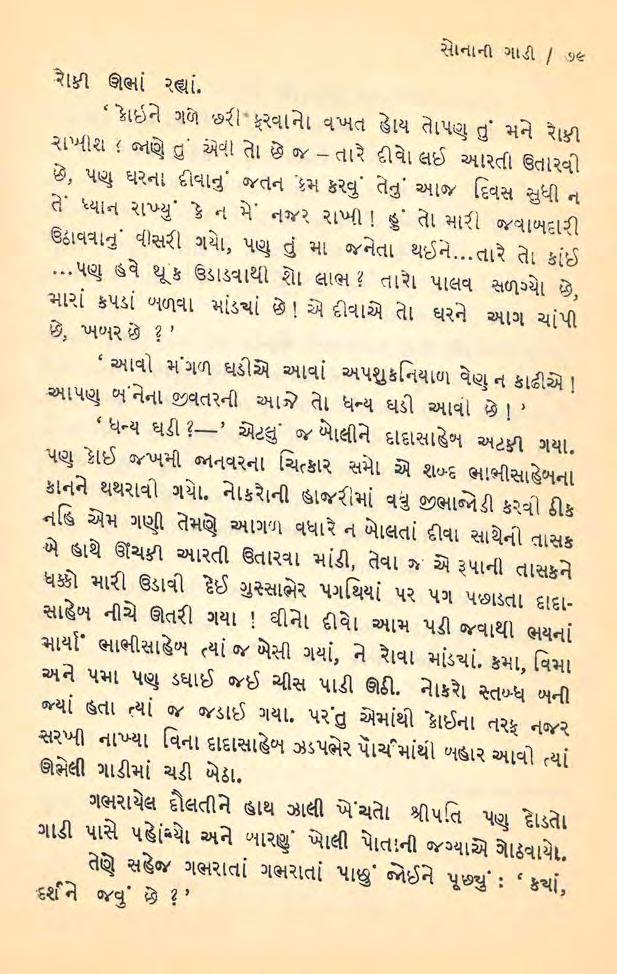 સોનાની ગાડી / ૭૯
રોકી ઊભાં રહ્યાં.
‘કોઈને ગળે છરી ફરવાનો વખત હોય તોપણ તું મને રોકી
રાખીશ ? જાણે તું એવી તો છે જ – તારે દીવો લઈ આરતી ઉતારવી
છે, પણ ઘરના દીવાનું જતન કેમ કરવું તેનું આજ દિવસ સુધી ન
તેં ધ્યાન રાખ્યું કે ન મેં નજર રાખી! હું તો મારી જવાબદારી
ઉઠાવવાનું વીસરી ગયો, પણ તું મા જનેતા થઈને...તારે તો કાંઈ
...પણ હવે થૂંક ઉડાડવાથી શો લાભ? તારો પાલવ સળગ્યો છે,
મારાં કપડાં બળવા માંડ્યાં છે! એ દીવાએ તો ઘરને આગ ચાંપી
છે, ખબર છે ?’
‘આવી મંગળ ઘડીએ આવાં અપશુકનિયાળ વેણ ન કાઢીએ!
આપણ બંનેના જીવતરની આજે તો ધન્ય ઘડી આવી છે!’
‘ધન્ય ઘડી ?—’ એટલું જ બોલીને દાદાસાહેબ અટકી ગયા.
પણ કોઈ જખમી જાનવરના ચિત્કાર સમો એ શબ્દ ભાભીસાહેબના
કાનને થથરાવી ગયો. નોકરોની હાજરીમાં વધુ જીભાજોડી કરવી ઠીક
નહિ એમ ગણી તેમણે આગળ વધારે ન બોલતાં દીવા સાથેની તાસક
બે હાથે ઊંચકી આરતી ઉતારવા માંડી, તેવા જ એ રૂપાની તાસકને
ધક્કો મારી ઉડાવી દેઈ ગુસ્સાભેર પગથિયાં પર પગ પછાડતા દાદા-
સાહેબ નીચે ઊતરી ગયા ! ઘીનો દીવો આમ પડી જવાથી ભયનાં
માર્યાં ભાભીસાહેબ ત્યાં જ બેસી ગયાં, ને રોવા માંડ્યાં. કમા, વિમા
અને પમા પણ ડઘાઈ જઈ ચીસ પાડી ઊઠી. નોકરો સ્તબ્ધ બની
જ્યાં હતા ત્યાં જ જડાઈ ગયા. પરંતુ એમાંથી કોઈના તરફ નજર
સરખી નાખ્યા વિના દાદાસાહેબ ઝડપભેર પૉર્ચમાંથી બહાર આવી ત્યાં
ઊભેલી ગાડીમાં ચડી બેઠા.
ગભરાયેલ દૌલતીને હાથ ઝાલી ખેંચતો શ્રીપતિ પણ દોડતો
ગાડી પાસે પહોંચ્યો અને બારણું ખોલી પોતાની જગ્યાએ ગોઠવાયો.
તેણે સહેજ ગભરાતાં ગભરાતાં પાછું જોઈને પૂછ્યું : ‘ક્યાં,
દર્શને જવું છે ?’